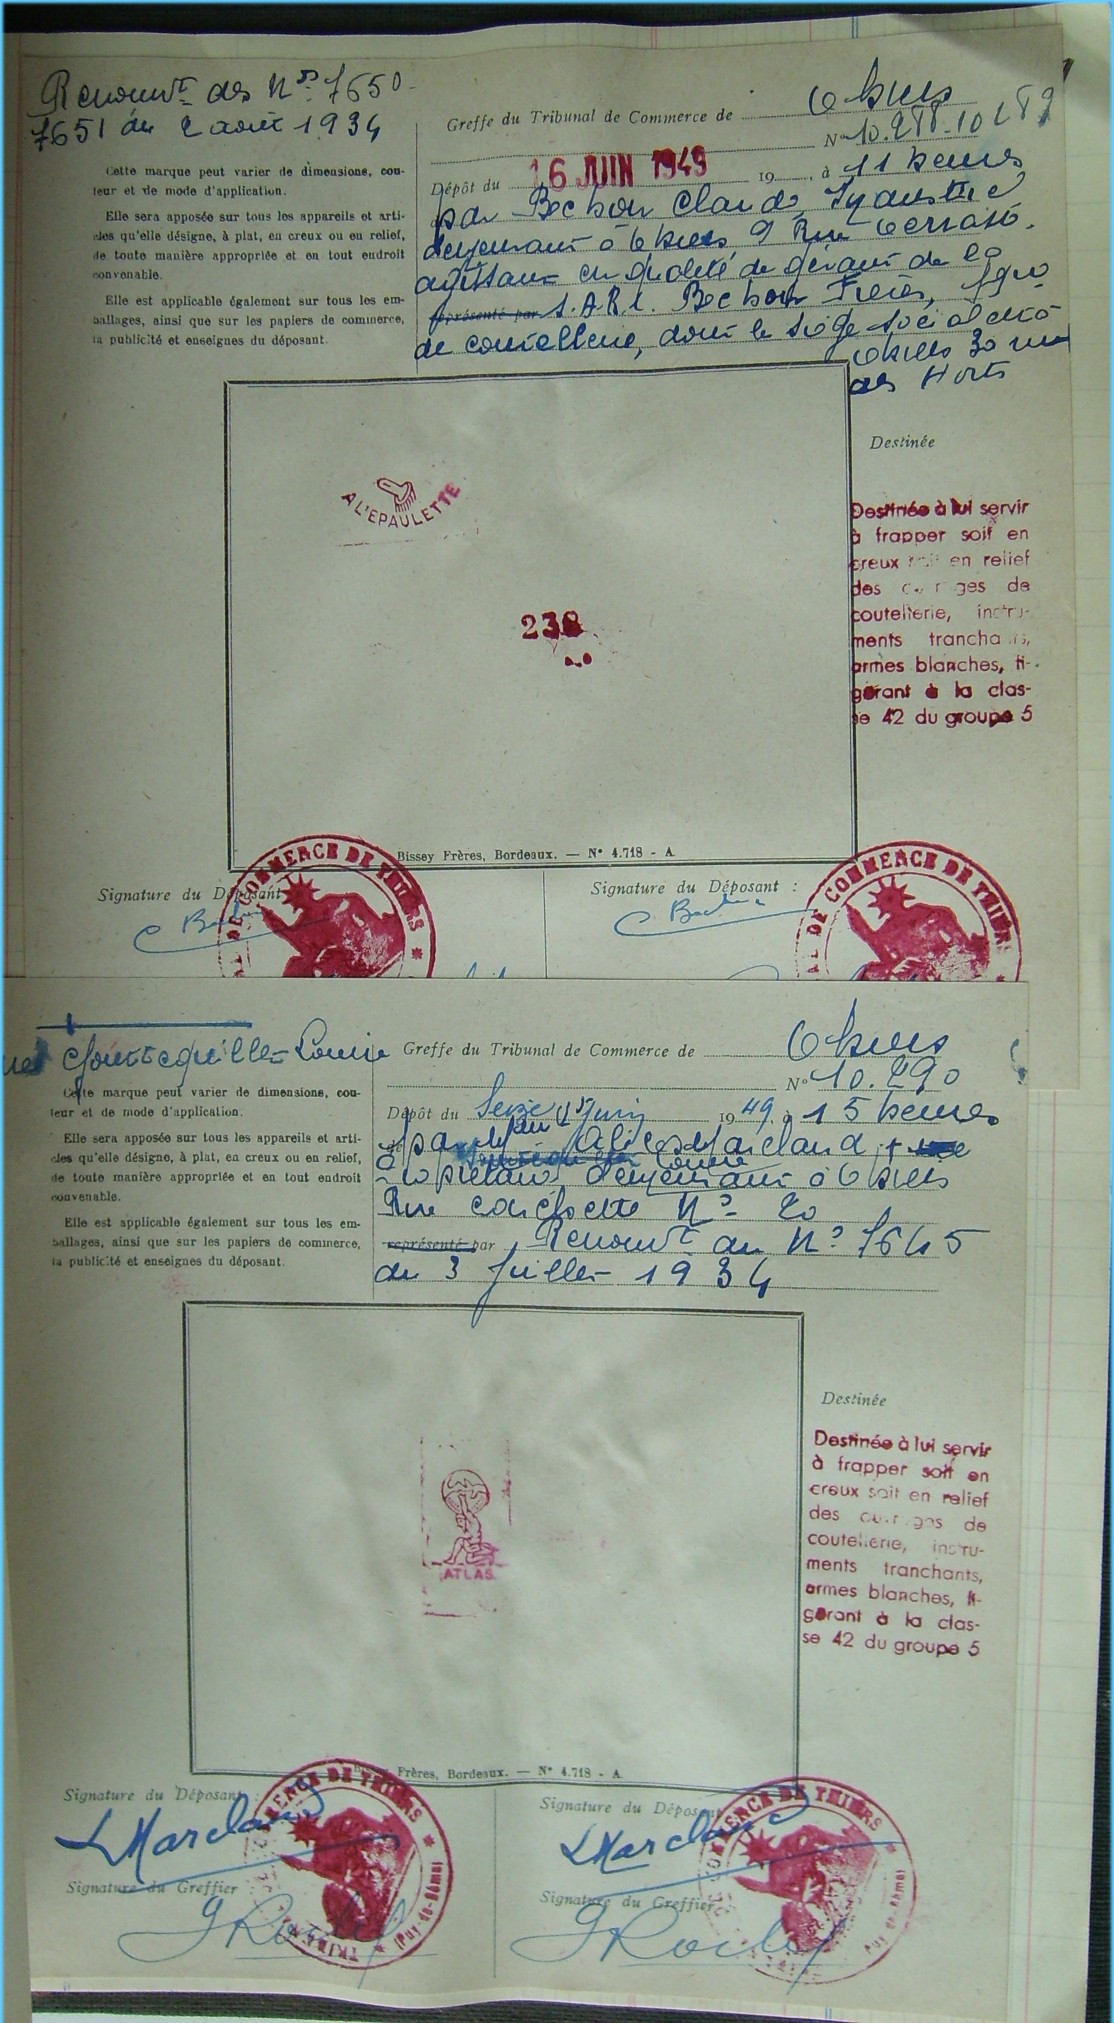 Renouvt des Nos 7650-
7651 du 2 août 1934
Cette marque peut varier de dimensions, cou-
leur et de mode d'application.
Elle sera apposée sur tous les appareils et arti-
cles qu'elle désigne, à plat, en creux ou en relief,
de toute manière appropriée et en tout endroit
convenable.
Elle est applicable également sur tous les em-
ballages, ainsi que sur les papiers de commerce,
la publicité et enseignes du déposant.
Greffe du Tribunal de Commerce de Thiers
No 10.288-10289
Dépôt du 16 JUIN 1949 19 à 11 heures
par Bechon Claude, Industriel
demeurant à Thiers 9 Rue
agissant en qualité de gérant de la
représenté par S.A.R.L. Bechon Frères,
de coutellerie, dont le siège social est à
Thiers 30 rue
des Horts
Destinée
A L'EPAULETTE
238
Destinée à lui servir
à frapper soit en
creux soit en relief
des ouvrages de
coutellerie, instru-
ments tranchants,
armes blanches, fi-
gurant à la clas-
se 42 du groupe 5
Bissey Frères, Bordeaux. — N° 4.718 - A
Signature du Déposant
Signature du Déposant :
DE COMMERCE DE THIERS
AL DE COMMERCE DE THIERS
Louise
Cette marque peut varier de dimensions, cou-
leur et de mode d'application.
Elle sera apposée sur tous les appareils et arti-
cles qu'elle désigne, à plat, en creux ou en relief,
de toute manière appropriée et en tout endroit
convenable.
Elle est applicable également sur tous les em-
ballages, ainsi que sur les papiers de commerce,
la publicité et enseignes du déposant.
Greffe du Tribunal de Commerce de Thiers
No 10.290
Dépôt du Seize Juin 1949 à 15 heures
par
demeurant à Thiers
Rue No 20
représenté par Renouvt du No 7645
du 3 Juillet 1934
Destinée
ATLAS
Destinée à lui servir
à frapper soit en
creux soit en relief
des ouvrages de
coutellerie, instru-
ments tranchants,
armes blanches, fi-
gurant à la clas-
se 42 du groupe 5
Frères, Bordeaux. — N° 4.718 - A
Signature du Déposant :
Signature du Déposant
Signature du Greffier
Signature du Greffier
COMMERCE DE THIERS
(Puy-de-Dôme)
COMMERCE DE THIERS